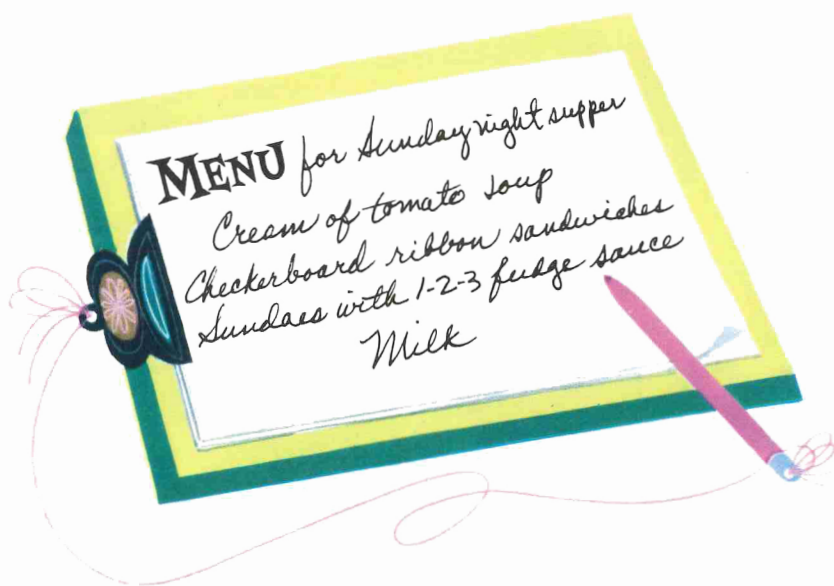 MENU for Sunday night supper
Cream of tomato soup
Checkerboard ribbon sandwiches
Sundaes with 1-2-3 fudge sauce
Milk